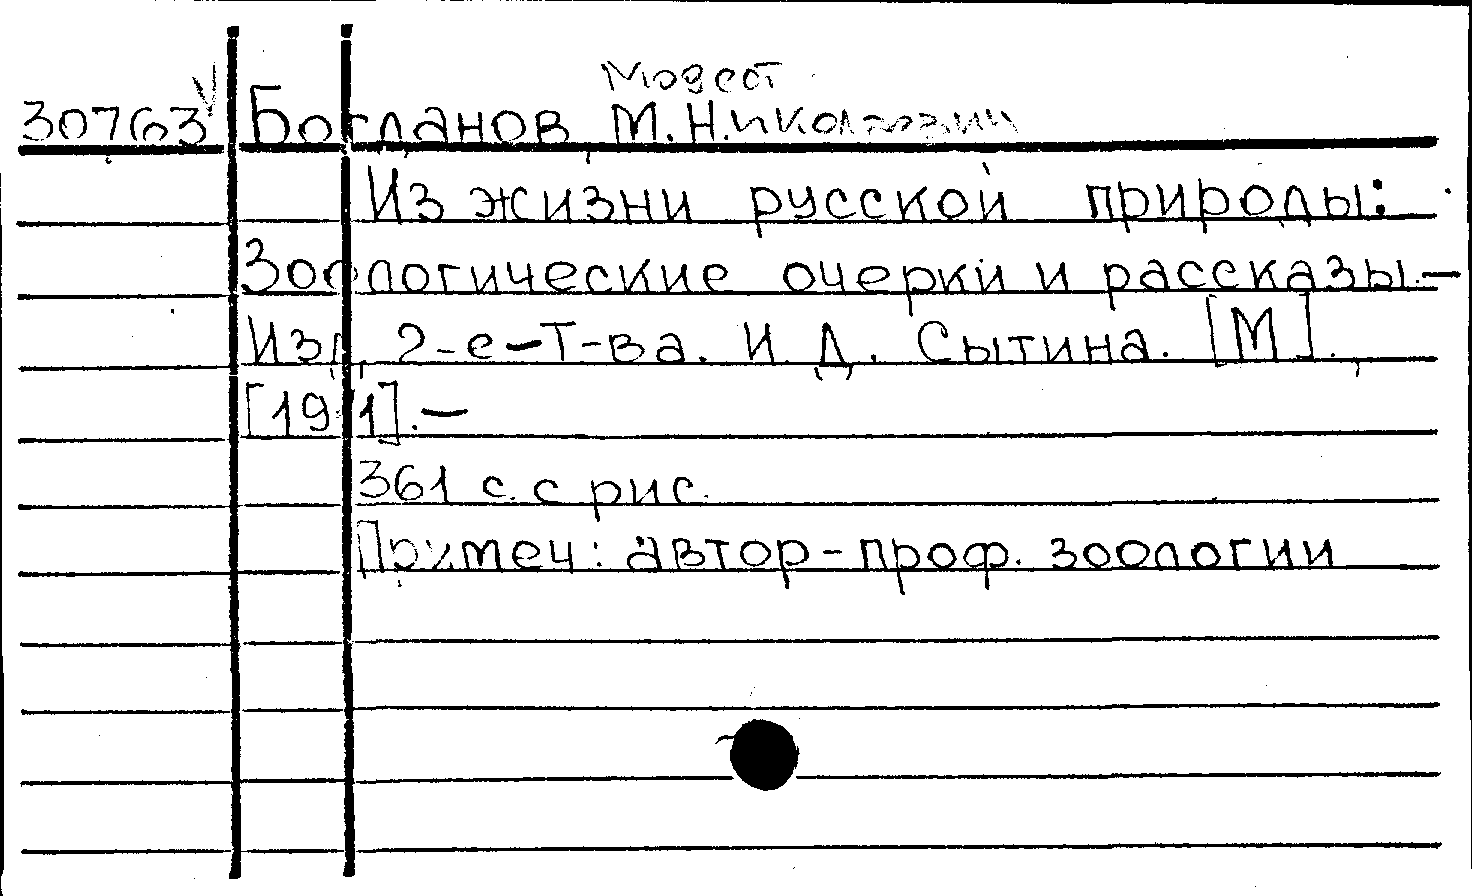 Модест
30763 V Богданов М.Николаевич
Из жизни русской природы:
Зоологические очерки и рассказы.—
Изд. 2-е—Т-ва. И. Д. Сытина. [М].,
[1911].—
361 с. с рис.
Примеч: автор-проф. зоологии